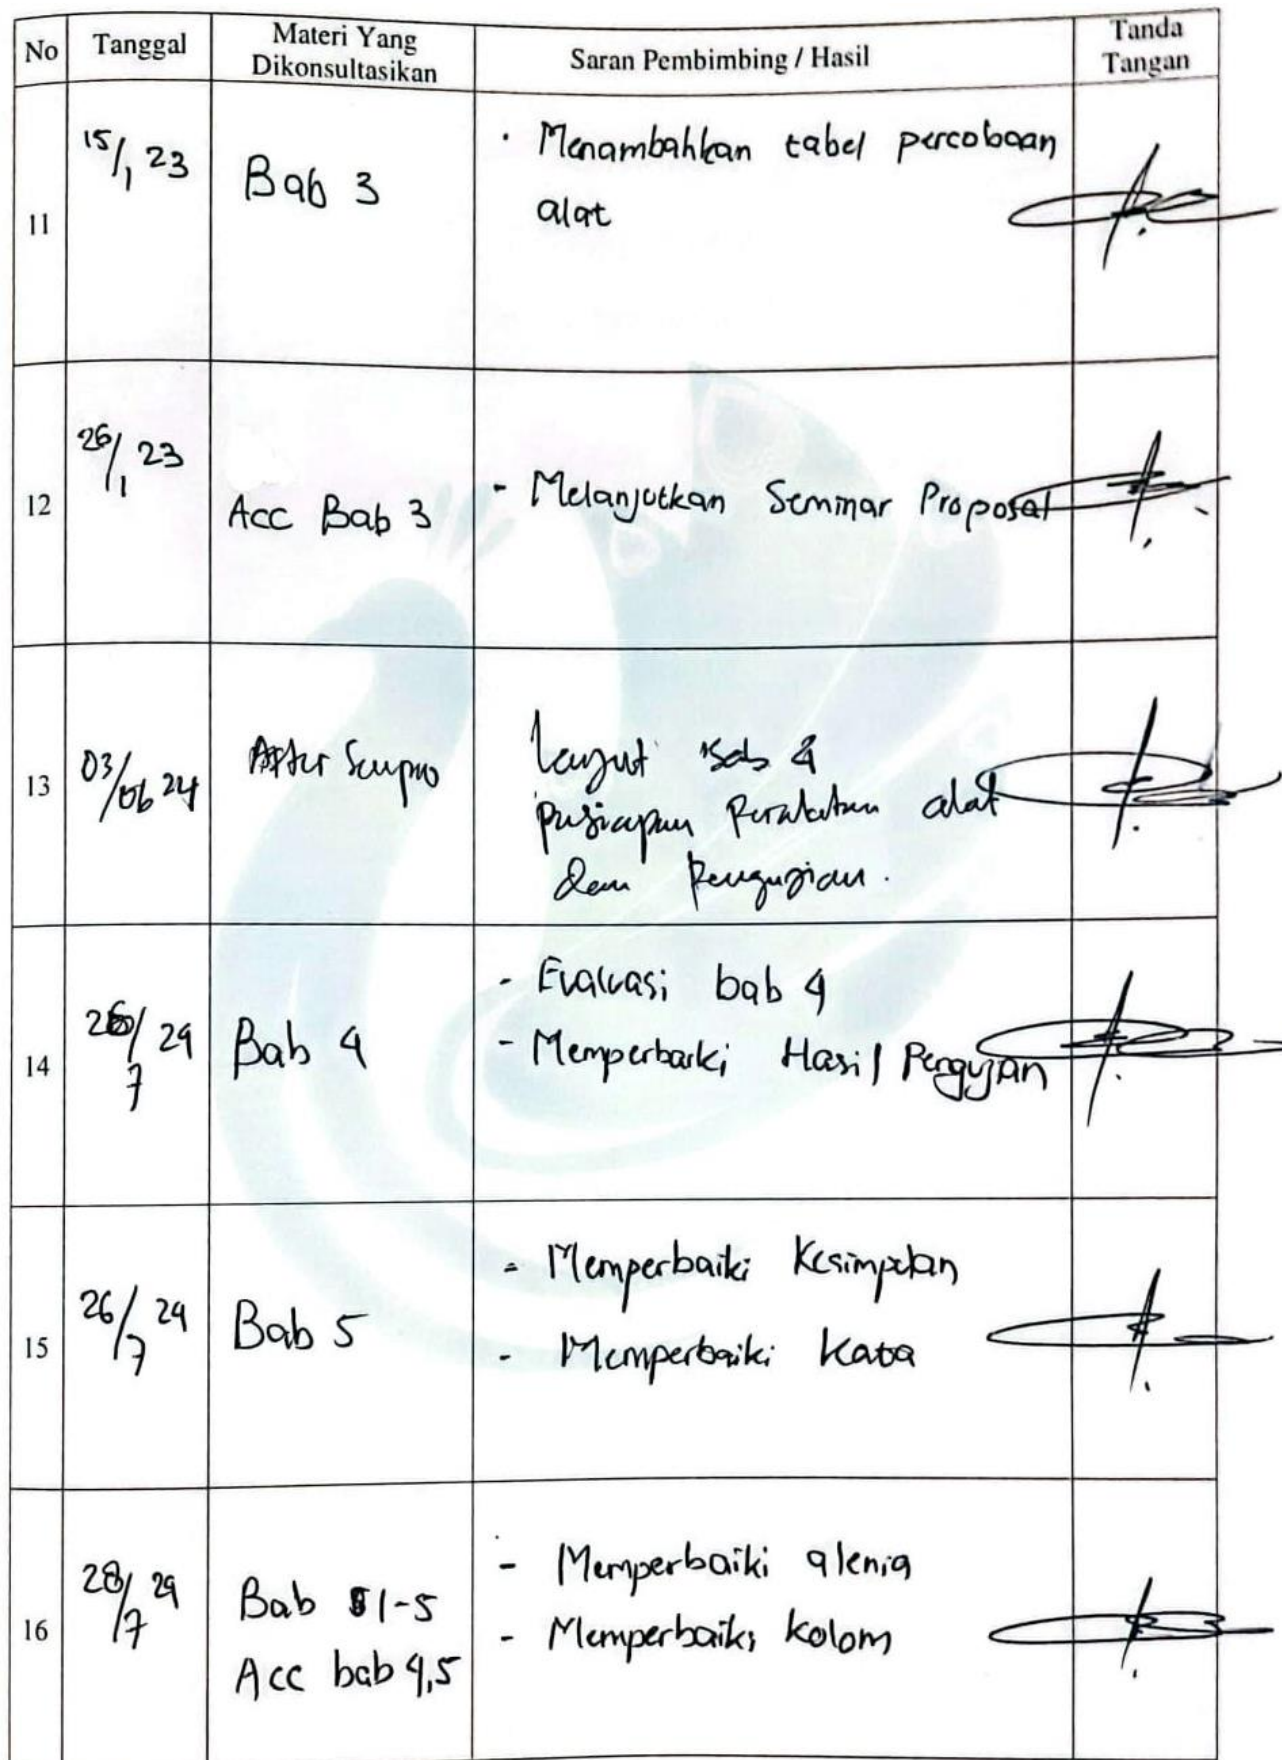 No Tanggal Materi Yang Dikonsultasikan Saran Pembimbing / Hasil Tanda Tangan
11 15/1 23 Bab 3 · Menambahkan tabel percobaan
alat
12 26/1 23 Acc Bab 3 - Melanjutkan Seminar Proposal
13 03/06 24 After Sempro Lanjut Bab 4
persiapan Perakitan alat
dan Pengujian.
14 26/7 24 Bab 4 - Evaluasi bab 4
- Memperbaiki Hasil Pengujian
15 26/7 24 Bab 5 - Memperbaiki Kesimpulan
- Memperbaiki Kata
16 28/7 24 Bab 1-5 - Memperbaiki alenia
Acc bab 4,5 - Memperbaiki kolom